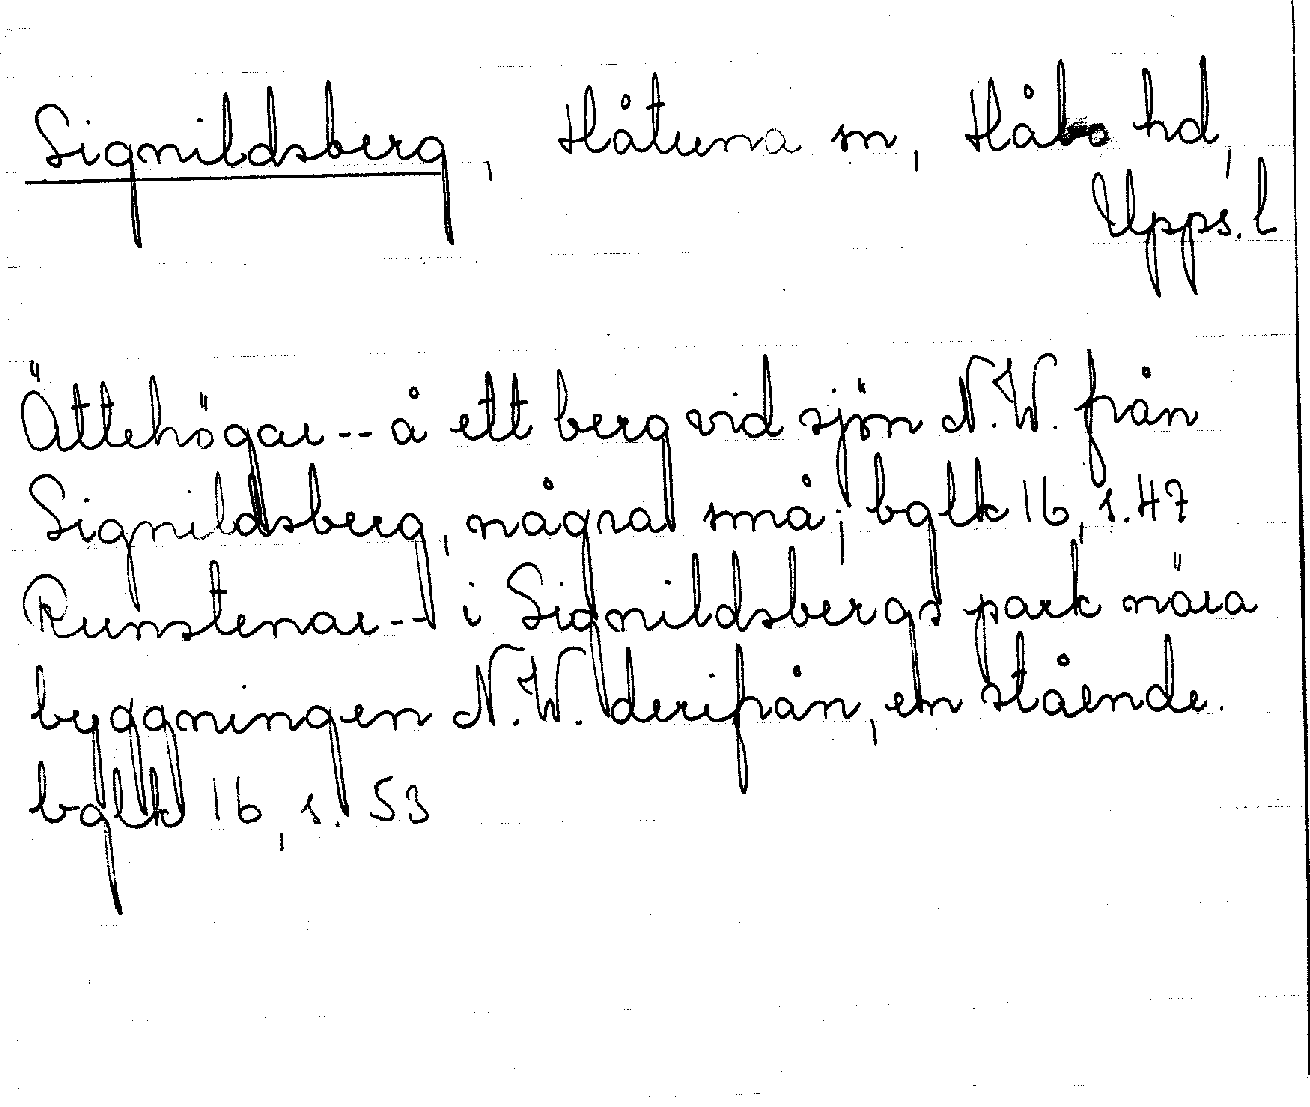 Signildsberg, Håtuna sn, Håbo hd,
Upps. l
Ättehögar -- å ett berg vid sjön N.W. från
Signildsberg, några små; bglk 16, s. 47
Runstenar -- i Signildsbergs park nära
byggningen N.W. derifrån, en stående.
bglk 16, s. 53